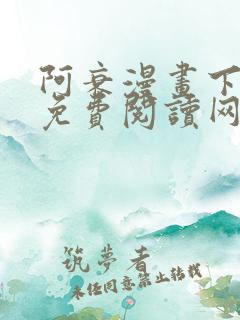 阿衰漫畫下
免費閱讀网
筑夢者
未经同意禁止转载